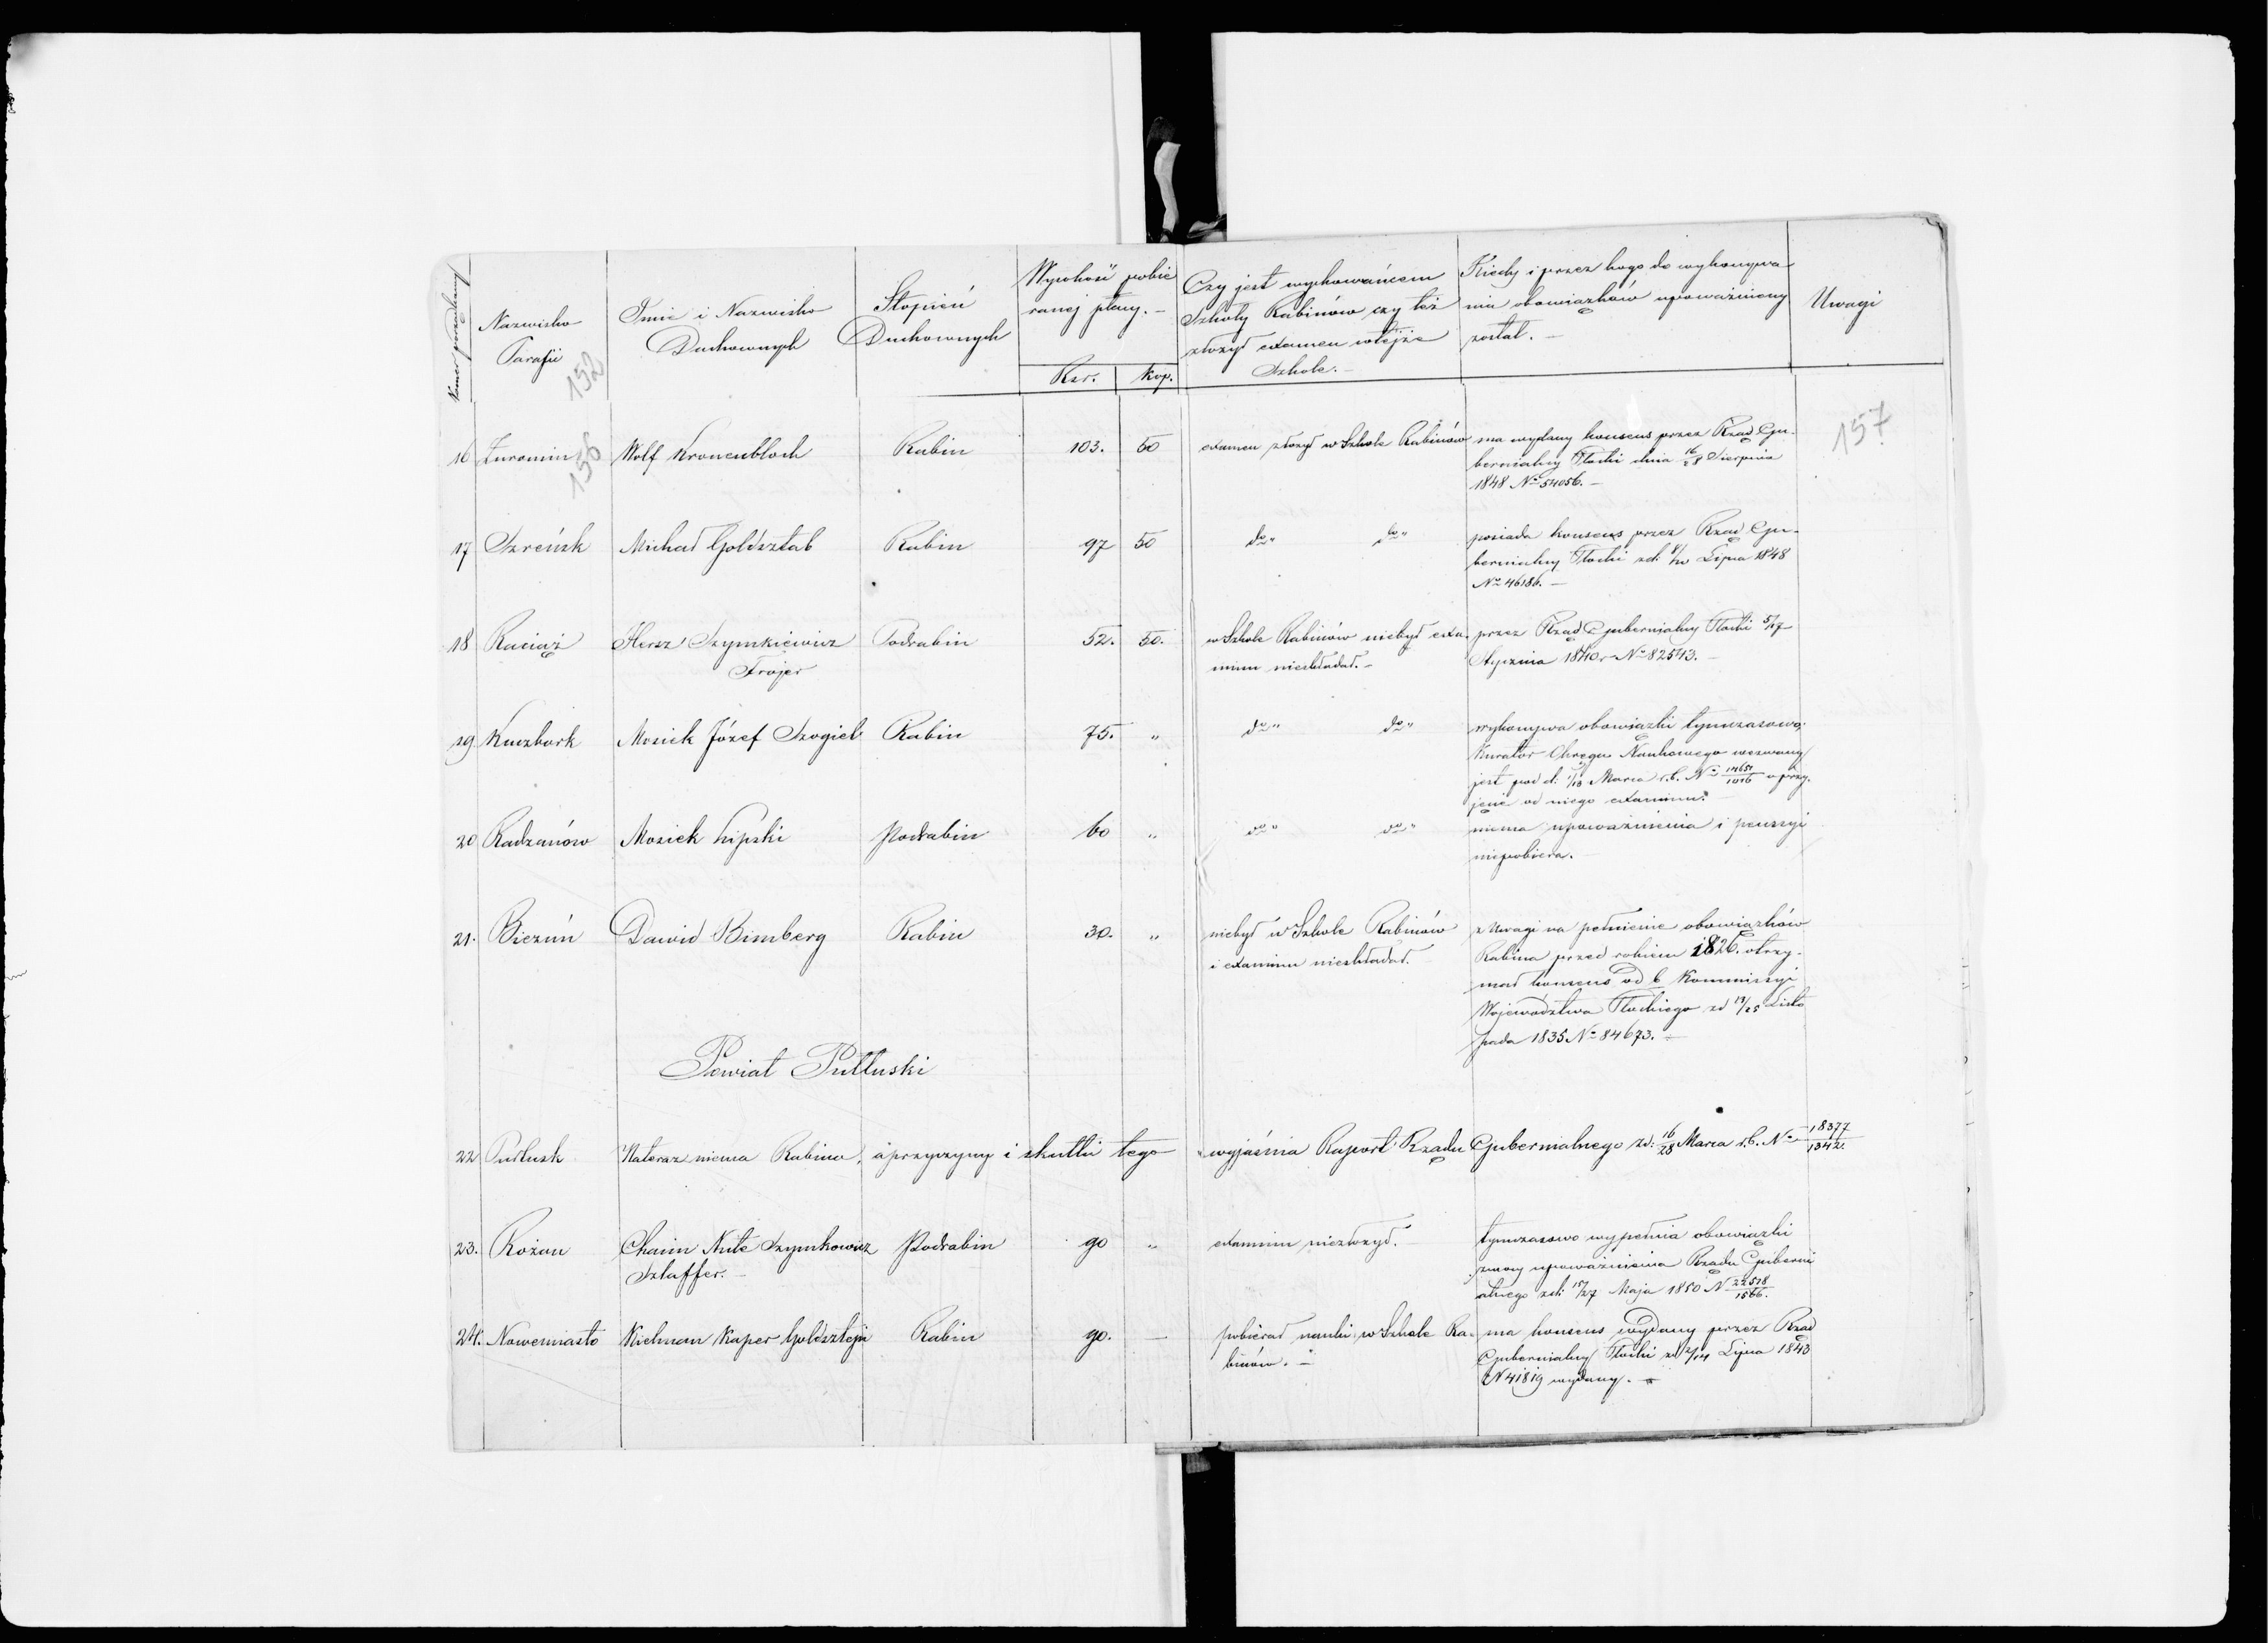 Numer porządkowy
Nazwisko
Parafii
Imie i Nazwisko
Duchownych
Stopień
Duchownych
Wysokość pobie
ranej płacy. –
Rsr. Kop.
Czy jest wychowańcem
Szkoły Rabinów czy też
złożył examen w tejże
Szkole. –
Kiedy i przez kogo do wykonywa
nia obowiązków upoważniony
został. –
Uwagi
152
156
157
16 Żuromin Wolf Kronenbloch Rabin 103. 50 examen złożył w Szkole Rabinów ma wydany konsens przez Rząd Gu-
bernialny Płocki dnia 16/28 Sierpnia
1848 No 54056. –
17 Szreńsk Michał Goldsztab Rabin 97 50 do " do " posiada konsens przez Rząd Gu-
bernialny Płocki zd: 8/20 Lipca 1848
No 46186. –
18 Raciąż Hersz Szymkiewicz Podrabin 52. 50. w Szkole Rabinów niebył exa- przez Rząd Gubernialny Płocki 5/17
Frojer minu nieskładał. – Stycznia 1840 r No 82543. –
19 Kuczbork Mosiek Józef Szogiel Rabin 75. " do " do " wykonywa obowiązki tymczasowo;
Kurator Okręgu Naukowego wezwany
jest pod d: 1/13 Marca r.b. No 14651/1016 o przy-
jęcie od niego examinu. –
20 Radzanów Mosiek Lipski Podrabin 60 " do " do " niema upoważnienia i pensyi
niepobiera. –
21. Biezuń Dawid Bimberg Rabin 30. " niebył w Szkole Rabinów z Uwagi na pełnienie obowiązków
i examinu nieskładał. Rabina przed rokiem 1826. otrzy-
mał konsens od b Kommissyi
Województwa Płockiego zd 13/25 Listo
pada 1835 No 84673. –
Powiat Pułtuski
22 Pułtusk Nateraz niema Rabina, a przyczyny i skutki tego wyjaśnia Raport Rządu Gubernialnego zd: 16/28 Marca r.b. No 18377/1342.
23. Rożan Chaim Nute Szymkowicz Podrabin 90 " examinu niezłożył. tymczasowo wypełnia obowiązki
Szlaffer. – z mocy upoważnienia Rządu Guberni
alnego zd: 15/27 Maja 1850 N 22578/1566.
24. Nowemiasto Kielman Kaper Goldsztejn Rabin 90. — pobierał nauki w Szkole Ra- ma konsens wydany przez Rząd
binów. – Gubernialny Płocki zd 2/14 Lipca 1843
N 41819 wydany. –